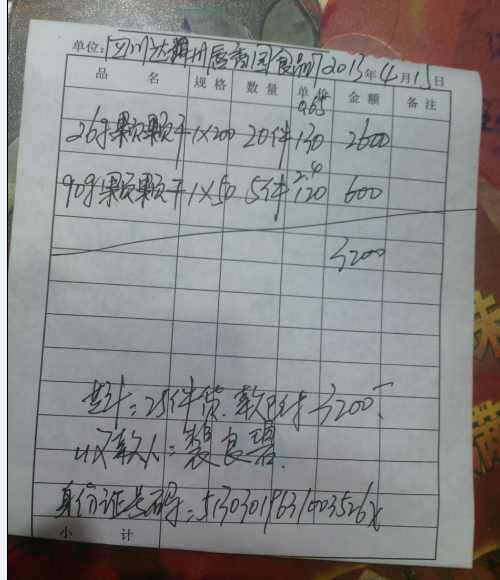 单位: 四川达州唇香园食品厂 2013年4月15日
品 名 规格 数量 单价 金额 备注
0.65
26g颗颗干 1×200 20件 130 2600
2.4
90g颗颗干 1×50 5件 120 600
3200
共计: 25件货. 款已付 3200.
收款人: 裴良碧.
身份证号码: 51303019631003526x
小 计